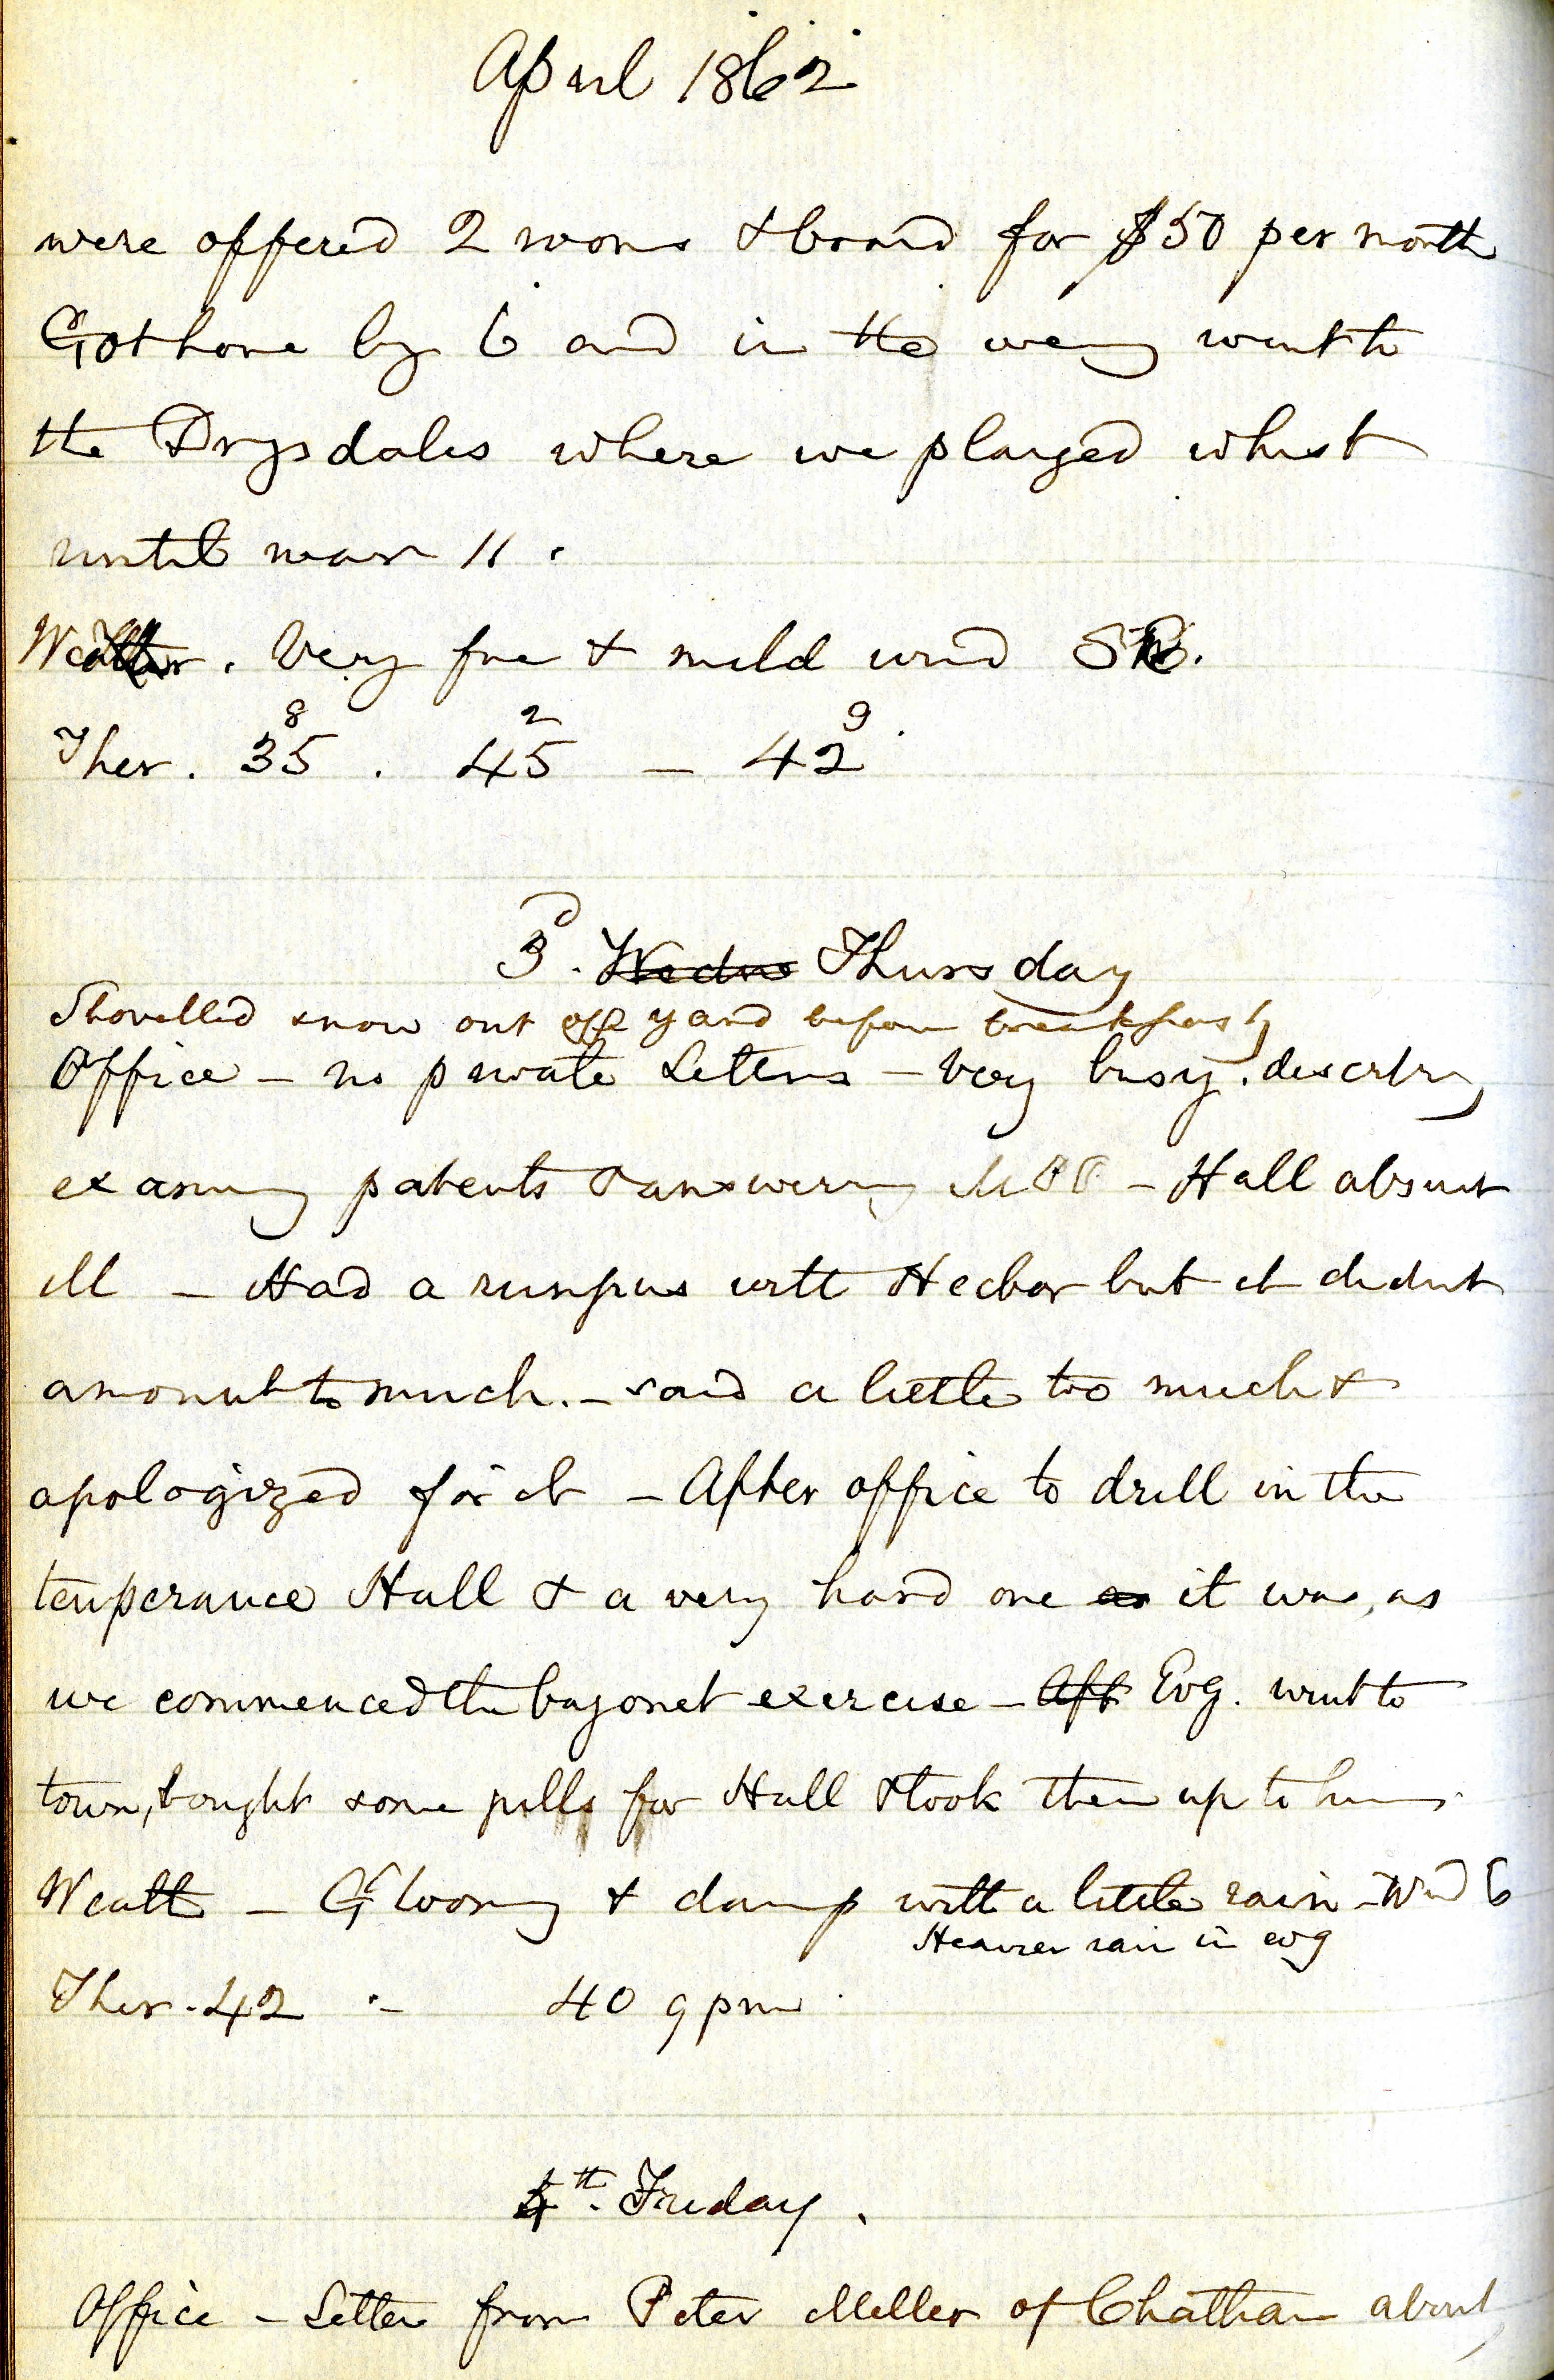 April 1862
were offered 2 rooms & board for $50 per month
Got home by 6 and in the eveng went to
the Drysdales where we played whist
until near 11.
Weather. Very fine & mild wind
8 2 9
Ther. 35 . 45 – 42
3d. Wednes Thursday
Shovelled snow out off yard before breakfast
Office – no private Letters – very busy.
examing patents & answering – Hall absent
ill – Had a rumpus with Hector but it didnt
amount to much. – said a little too much &
apologized for it – After office to drill in the
temperance Hall & a very hard one as it was, as
we commenced the bayonet exercise – Aft Evg. went to
town, bought some pills for Hall & took them up to him.
Weath – Gloomy & damp with a little rain – Wind E
Heavier rain in evg
Ther. 42 – 40 9 pm.
4th. Friday.
Office – Letter from Peter Miller of Chatham about